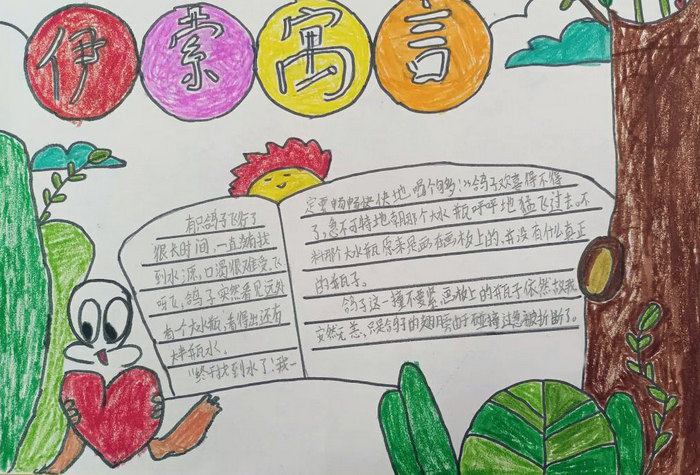 伊索寓言
有只鸽子飞行了
很长时间,一直没有找
到水源,口渴很难受,飞
呀飞,鸽子突然看见远处
有个大水瓶,看得出还有
大半瓶水。
“终于找到水了!我一
定要畅畅快快地喝个够!”鸽子欢喜得不得
了,急不可待地朝那个大水瓶呼呼地猛飞过去。不
料那个大水瓶原来是画在画板上的,并没有什么真正
的瓶子。
鸽子这一撞不要紧,画板上的瓶子依然故我
安然无恙,只是鸽子的翅膀由于碰撞过急被折断了。